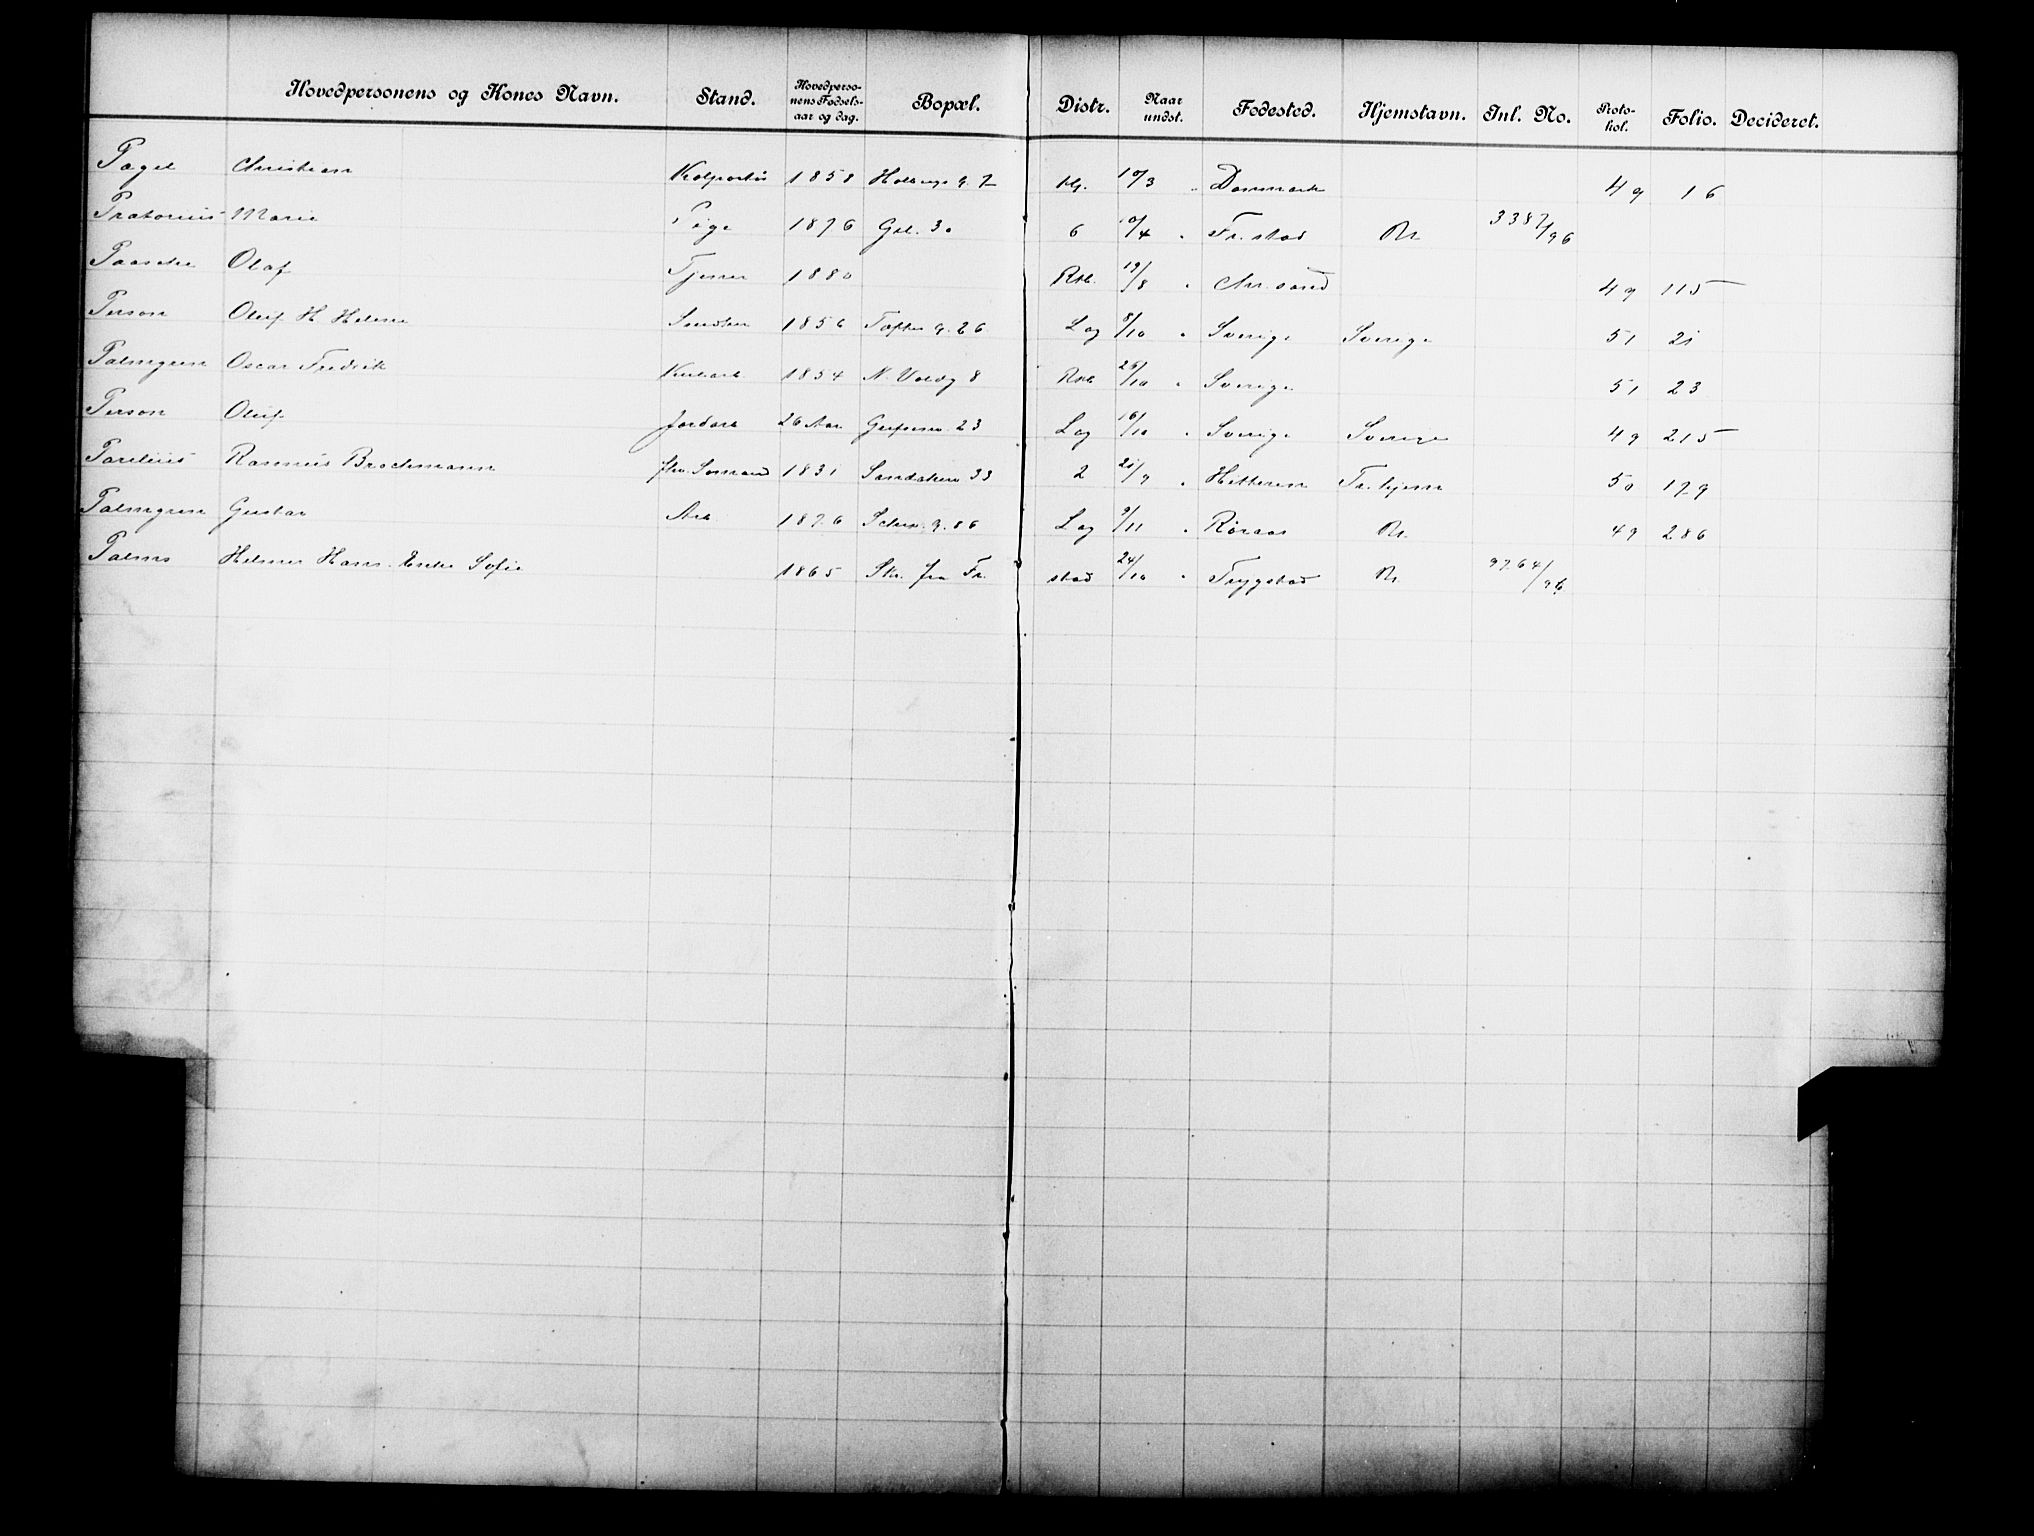 Hovedpersonens og Kones Navn. Stand. Hovedperso-nens Fødsels-aar og dag. Bopæl. Distr. Naar undst. Fødested. Hjemstavn. Inl. No. Proto-kol. Folio. Decideret.
Pagel Christian Kolportør 1858 Holbergs g. 7 10/3 " Danmark 49 16
Pratorius Marie Pige 1876 Grl. 30 6 10/4 " Fr.stad 3387/96
Paasche Olaf Tjener 1880 19/8 " Chr.sand 49 115
Person Oluf H Helene Snedker 1856 Toftes g. 26 Lag 8/10 " Sverige Sverige 51 21
Palmgren Oscar Fredrik 1854 N. Voldg 8 26/10 " Sverige 51 23
Person Oluf Jordarb 26 Aar 23 Lag 16/10 " Sverige Sverige 49 215
Parelius Rasmus Brochmann fhv. Sømand 1831 Sandakerv 33 2 21/9 " Hitteren Tr.hjem 50 179
Palmgren Gustav Arb 1876 Schw. g. 86 Lag 9/11 " Røraas 49 286
Palms Helmer Hans. Enke Sofie 1865 Skr. fra Fr. stad 24/10 " Trygstad 9764/96